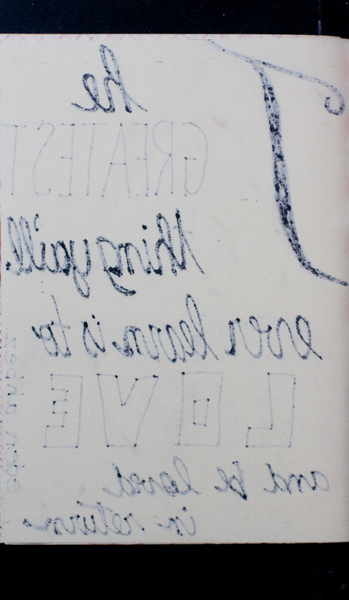 The
GREATEST
thing you'll
ever learn is to
LOVE
and be loved
in return.
eden ahbez